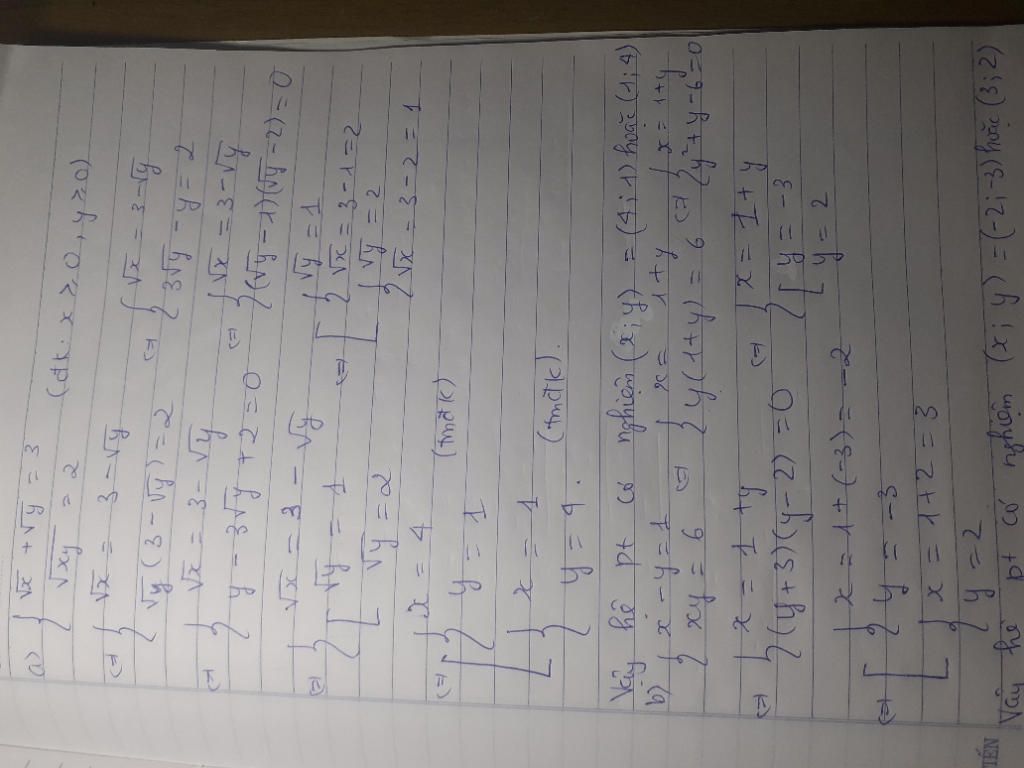 a) { √x + √y = 3
√xy = 2 (đk: x ≥ 0, y ≥ 0)
⇔ { √x = 3 - √y
√y (3 - √y) = 2 ⇔ { √x = 3 - √y
3√y - y = 2
⇔ { √x = 3 - √y
y - 3√y + 2 = 0 ⇔ { √x = 3 - √y
(√y - 1)(√y - 2) = 0
⇔ { √x = 3 - √y
[ √y = 1
√y = 2 ⇔ [ { √y = 1
√x = 3 - 1 = 2
{ √y = 2
√x = 3 - 2 = 1
⇔ [ { x = 4
y = 1 (tmđk)
{ x = 1
y = 4. (tmđk).
Vậy hệ pt có nghiệm (x; y) = (4; 1) hoặc (1; 4)
b) { x - y = 1
xy = 6 ⇔ { x = 1 + y
y(1 + y) = 6 ⇔ { x = 1 + y
y² + y - 6 = 0
⇔ { x = 1 + y
(y + 3)(y - 2) = 0 ⇔ { x = 1 + y
[ y = -3
y = 2
⇔ [ { x = 1 + (-3) = -2
y = -3
{ x = 1 + 2 = 3
y = 2
Vậy hệ pt có nghiệm (x; y) = (-2; -3) hoặc (3; 2)
TIẾN